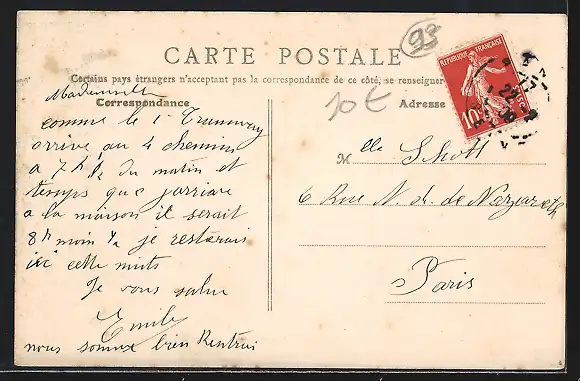 93
CARTE POSTALE
Certains pays étrangers n'acceptent pas la correspondance de ce côté, se renseigner
Correspondance
Adresse
10 €
RÉPUBLIQUE FRANÇAISE
10
Mademoiselle
comme le 1r Tramway
arrive au 4 chemins
a 7h ½ du matin et
temps que j'arrive
a la maison il serait
8h moin ¼ je resterais
ici cette nuits
Je vous salue
Emile
nous somme bien Rentrui
M lle Schott
6 Rue N. d. de Nazareth
Paris